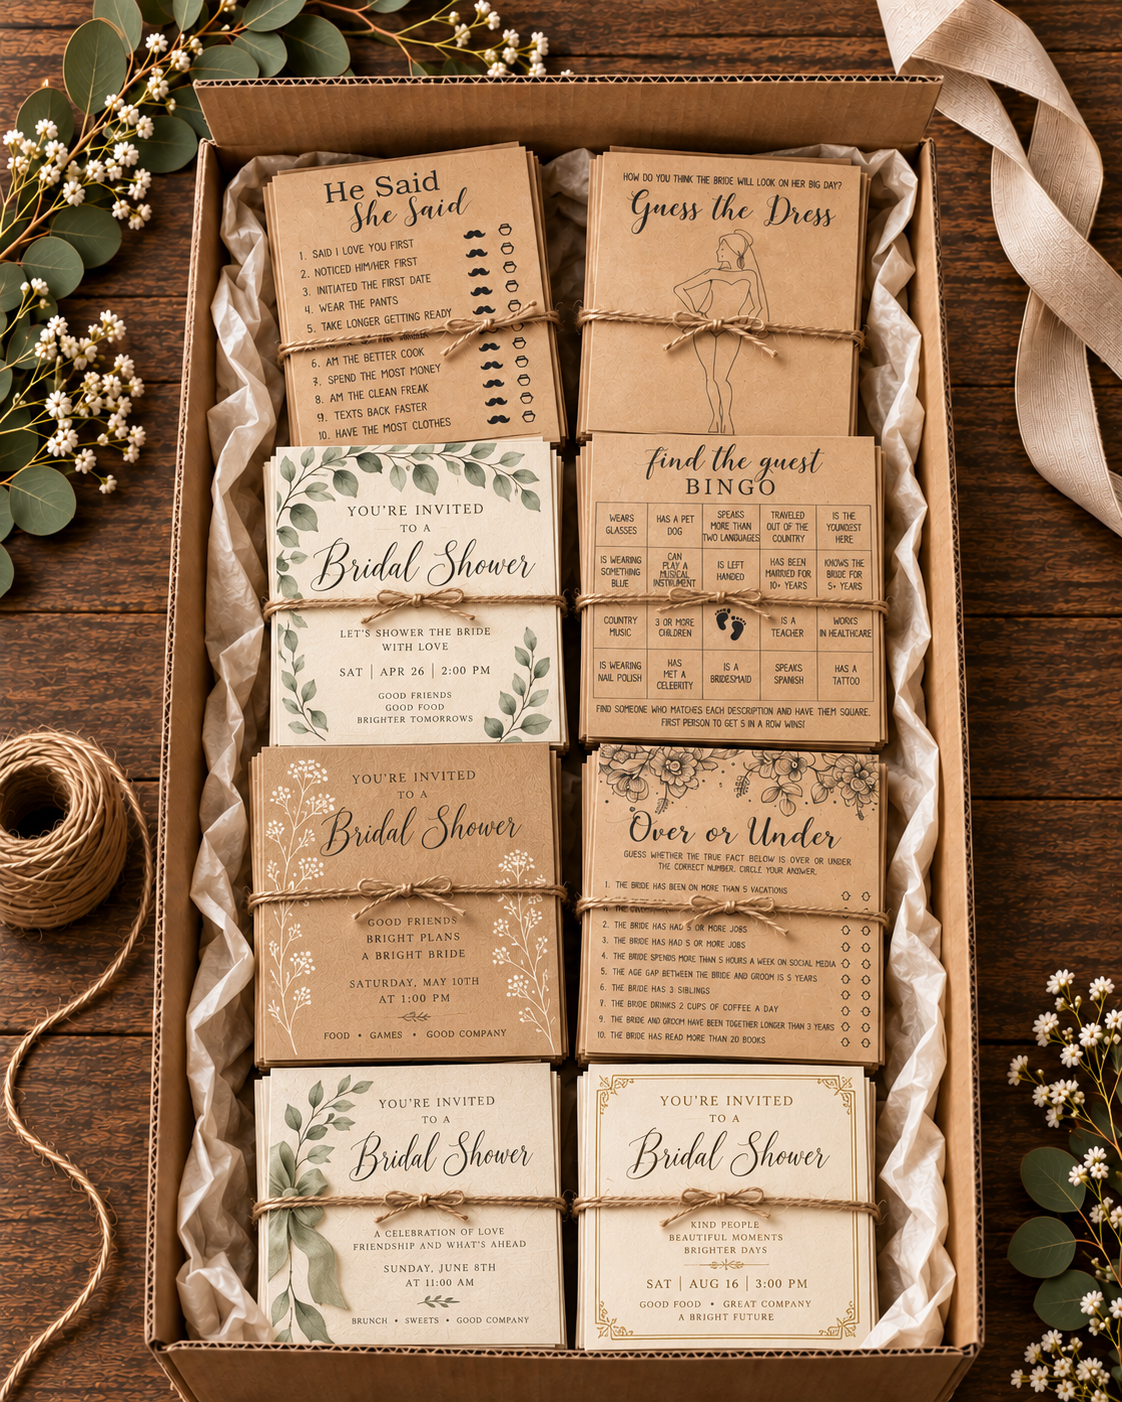 He Said
She Said
1. SAID I LOVE YOU FIRST
2. NOTICED HIM/HER FIRST
3. INITIATED THE FIRST DATE
4. WEAR THE PANTS
5. TAKE LONGER GETTING READY
6. AM THE BETTER COOK
7. SPEND THE MOST MONEY
8. AM THE CLEAN FREAK
9. TEXTS BACK FASTER
10. HAVE THE MOST CLOTHES
HOW DO YOU THINK THE BRIDE WILL LOOK ON HER BIG DAY?
Guess the Dress
YOU'RE INVITED
TO A
Bridal Shower
LET'S SHOWER THE BRIDE
WITH LOVE
SAT | APR 26 | 2:00 PM
GOOD FRIENDS
GOOD FOOD
BRIGHTER TOMORROWS
find the guest
BINGO
WEARS
GLASSES
HAS A PET
DOG
SPEAKS
MORE THAN
TWO LANGUAGES
TRAVELED
OUT OF THE
COUNTRY
IS THE
YOUNGEST
HERE
IS WEARING
SOMETHING
BLUE
CAN
PLAY A
MUSICAL
INSTRUMENT
IS LEFT
HANDED
HAS BEEN
MARRIED FOR
10+ YEARS
KNOWS THE
BRIDE FOR
5+ YEARS
COUNTRY
MUSIC
3 OR MORE
CHILDREN
IS A
TEACHER
WORKS
IN HEALTHCARE
IS WEARING
NAIL POLISH
HAS
MET A
CELEBRITY
IS A
BRIDESMAID
SPEAKS
SPANISH
HAS A
TATTOO
FIND SOMEONE WHO MATCHES EACH DESCRIPTION AND HAVE THEM SQUARE.
FIRST PERSON TO GET 5 IN A ROW WINS!
YOU'RE INVITED
TO A
Bridal Shower
GOOD FRIENDS
BRIGHT PLANS
A BRIGHT BRIDE
SATURDAY, MAY 10TH
AT 1:00 PM
FOOD • GAMES • GOOD COMPANY
Over or Under
GUESS WHETHER THE TRUE FACT BELOW IS OVER OR UNDER
THE CORRECT NUMBER. CIRCLE YOUR ANSWER.
1. THE BRIDE HAS BEEN ON MORE THAN 5 VACATIONS
2. THE BRIDE HAS HAD 5 OR MORE JOBS
3. THE BRIDE HAS HAD 5 OR MORE JOBS
4. THE BRIDE SPENDS MORE THAN 5 HOURS A WEEK ON SOCIAL MEDIA
5. THE AGE GAP BETWEEN THE BRIDE AND GROOM IS 5 YEARS
6. THE BRIDE HAS 3 SIBLINGS
7. THE BRIDE DRINKS 2 CUPS OF COFFEE A DAY
9. THE BRIDE AND GROOM HAVE BEEN TOGETHER LONGER THAN 3 YEARS
10. THE BRIDE HAS READ MORE THAN 20 BOOKS
YOU'RE INVITED
TO A
Bridal Shower
A CELEBRATION OF LOVE
FRIENDSHIP AND WHAT'S AHEAD
SUNDAY, JUNE 8TH
AT 11:00 AM
BRUNCH • SWEETS • GOOD COMPANY
YOU'RE INVITED
TO A
Bridal Shower
KIND PEOPLE
BEAUTIFUL MOMENTS
BRIGHTER DAYS
SAT | AUG 16 | 3:00 PM
GOOD FOOD • GREAT COMPANY
A BRIGHT FUTURE